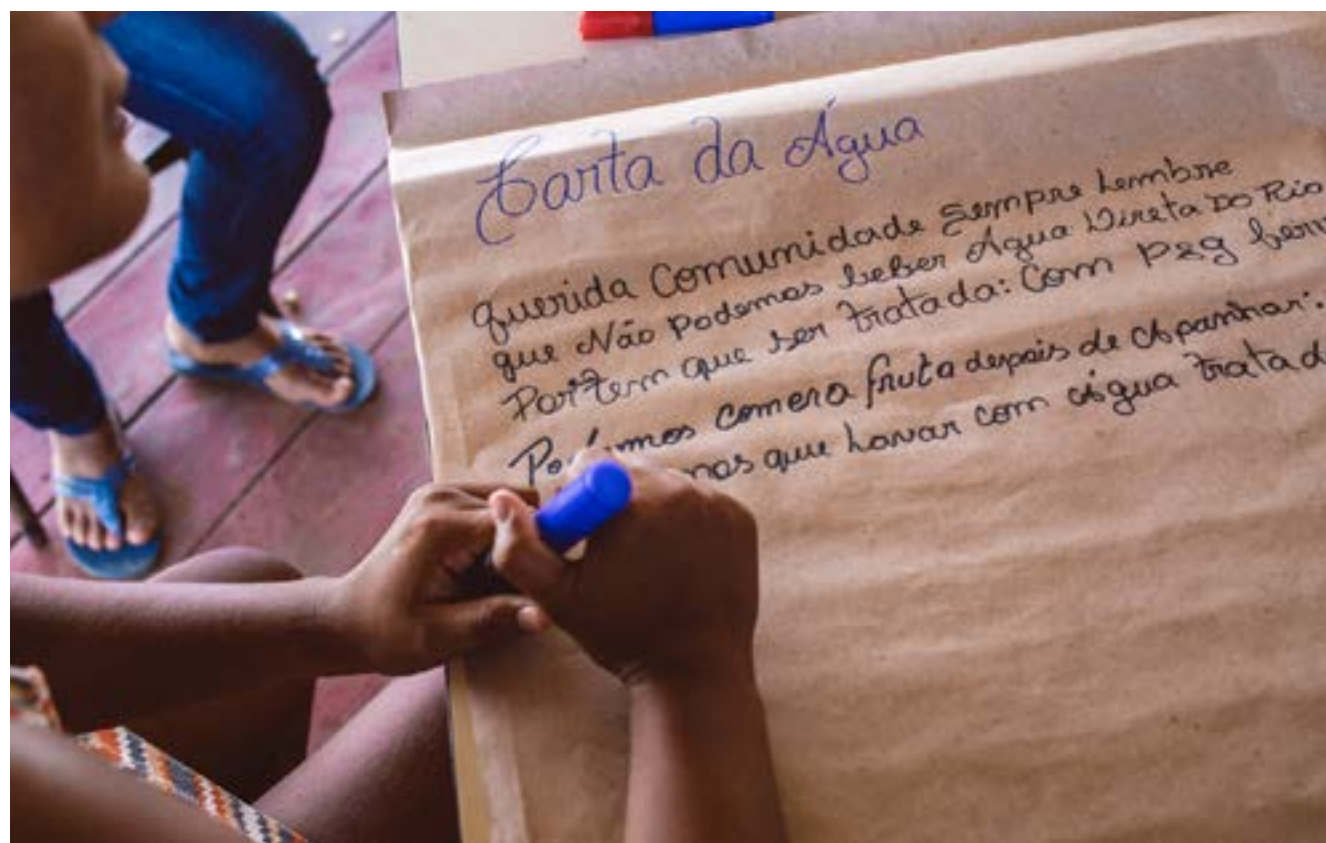 Carta da Água
querida Comunidade sempre Lembre
que Não Podemos beber Água Direta Do Rio
Portem que ser tratada: Com P&g
Podemos comer a fruta depois de Apanhar:
que Lavar com água